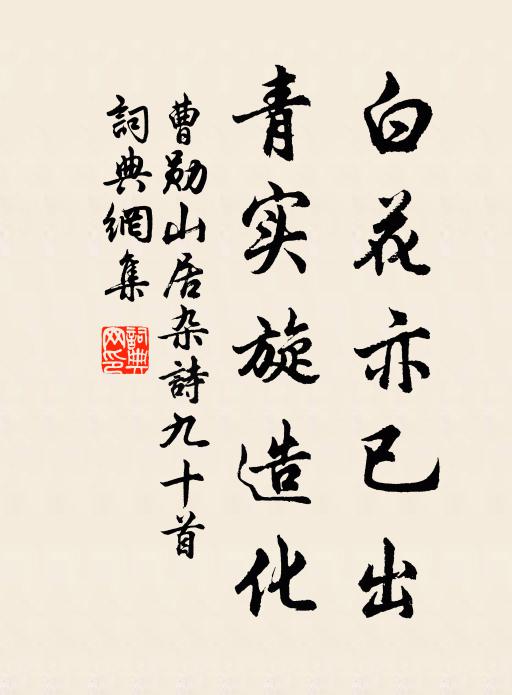 白花亦已出
青实旋造化
曹勋山居杂詩九十首
詞典網集
詞典网印